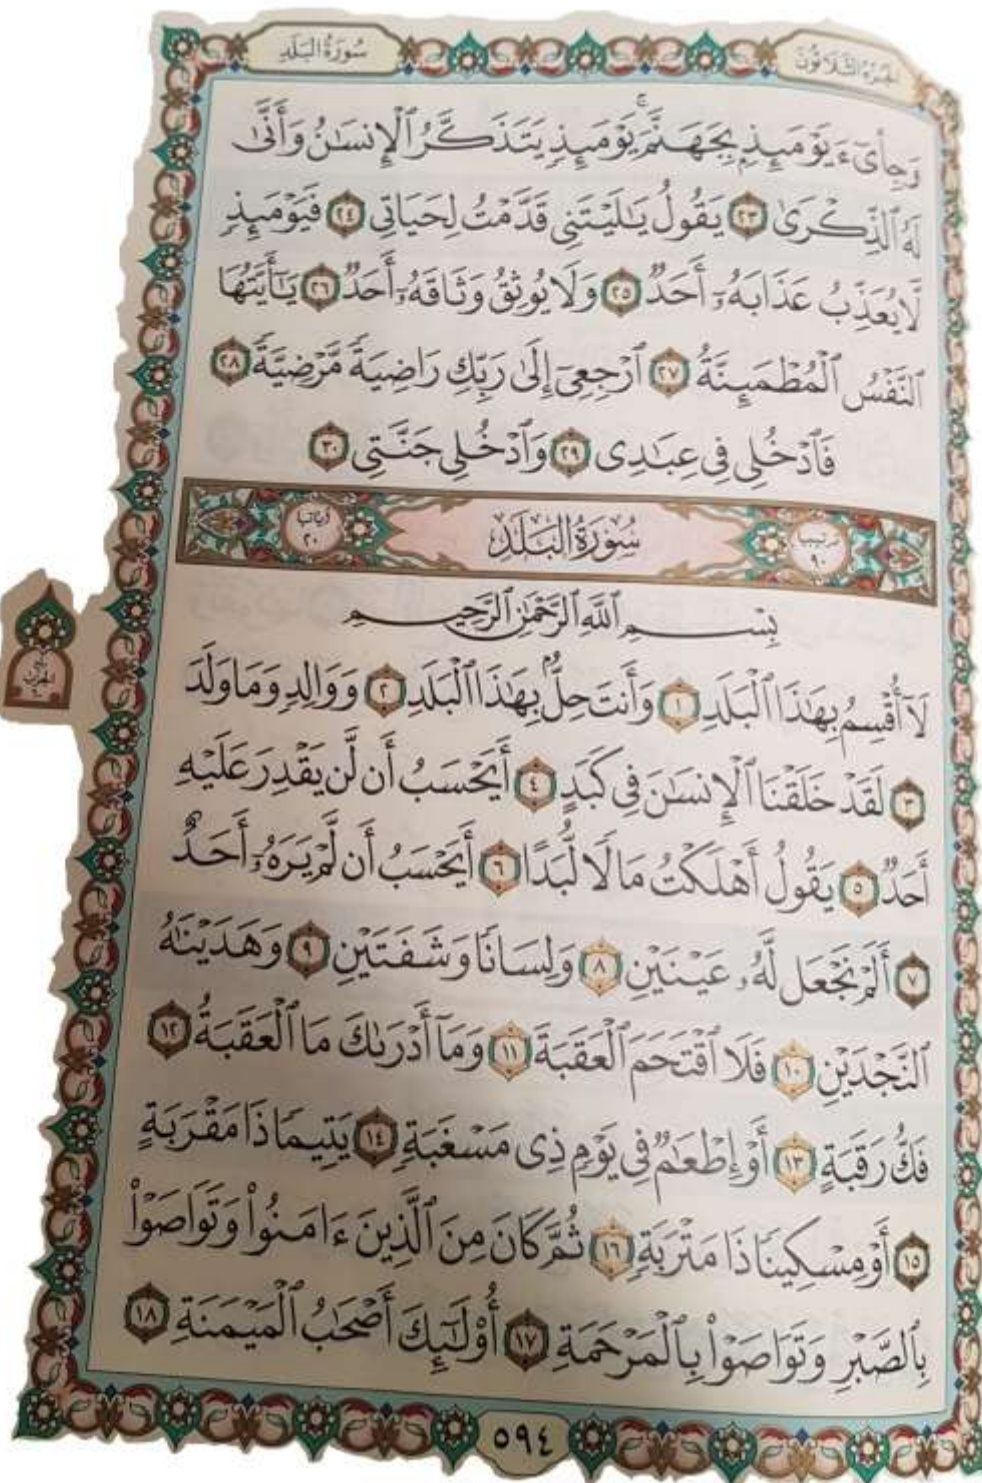 سُورَةُ البَلَدِ
الجُزءُ الثَّلَاثُونَ
وَجِاْىٓءَ يَوْمَئِذِۭ بِجَهَنَّمَۚ يَوْمَئِذٖ يَتَذَكَّرُ ٱلْإِنسَٰنُ وَأَنَّىٰ
لَهُ ٱلذِّكْرَىٰ ٢٣ يَقُولُ يَٰلَيْتَنِى قَدَّمْتُ لِحَيَاتِى ٢٤ فَيَوْمَئِذٖ
لَّا يُعَذِّبُ عَذَابَهُۥٓ أَحَدٌ ٢٥ وَلَا يُوثِقُ وَثَاقَهُۥٓ أَحَدٌ ٢٦ يَٰٓأَيَّتُهَا
ٱلنَّفْسُ ٱلْمُطْمَئِنَّةُ ٢٧ ٱرْجِعِىٓ إِلَىٰ رَبِّكِ رَاضِيَةً مَّرْضِيَّةً ٢٨
فَٱدْخُلِى فِى عِبَٰدِى ٢٩ وَٱدْخُلِى جَنَّتِى ٣٠
ترتيبها ٩٠
سُورَةُ البَلَدِ
آياتها ٢٠
بِسْمِ ٱللَّهِ ٱلرَّحْمَٰنِ ٱلرَّحِيمِ
لَآ أُقْسِمُ بِهَٰذَا ٱلْبَلَدِ ١ وَأَنتَ حِلٌّۢ بِهَٰذَا ٱلْبَلَدِ ٢ وَوَالِدٍ وَمَا وَلَدَ
٣ لَقَدْ خَلَقْنَا ٱلْإِنسَٰنَ فِى كَبَدٍ ٤ أَيَحْسَبُ أَن لَّن يَقْدِرَ عَلَيْهِ
أَحَدٌ ٥ يَقُولُ أَهْلَكْتُ مَالًا لُّبَدًا ٦ أَيَحْسَبُ أَن لَّمْ يَرَهُۥٓ أَحَدٌ
٧ أَلَمْ نَجْعَل لَّهُۥ عَيْنَيْنِ ٨ وَلِسَانًا وَشَفَتَيْنِ ٩ وَهَدَيْنَٰهُ
ٱلنَّجْدَيْنِ ١٠ فَلَا ٱقْتَحَمَ ٱلْعَقَبَةَ ١١ وَمَآ أَدْرَىٰكَ مَا ٱلْعَقَبَةُ ١٢
فَكُّ رَقَبَةٍ ١٣ أَوْ إِطْعَٰمٌ فِى يَوْمٍ ذِى مَسْغَبَةٍ ١٤ يَتِيمًا ذَا مَقْرَبَةٍ
١٥ أَوْ مِسْكِينًا ذَا مَتْرَبَةٍ ١٦ ثُمَّ كَانَ مِنَ ٱلَّذِينَ ءَامَنُوا۟ وَتَوَاصَوْا۟
بِٱلصَّبْرِ وَتَوَاصَوْا۟ بِٱلْمَرْحَمَةِ ١٧ أُو۟لَٰٓئِكَ أَصْحَٰبُ ٱلْمَيْمَنَةِ ١٨
٥٩٤